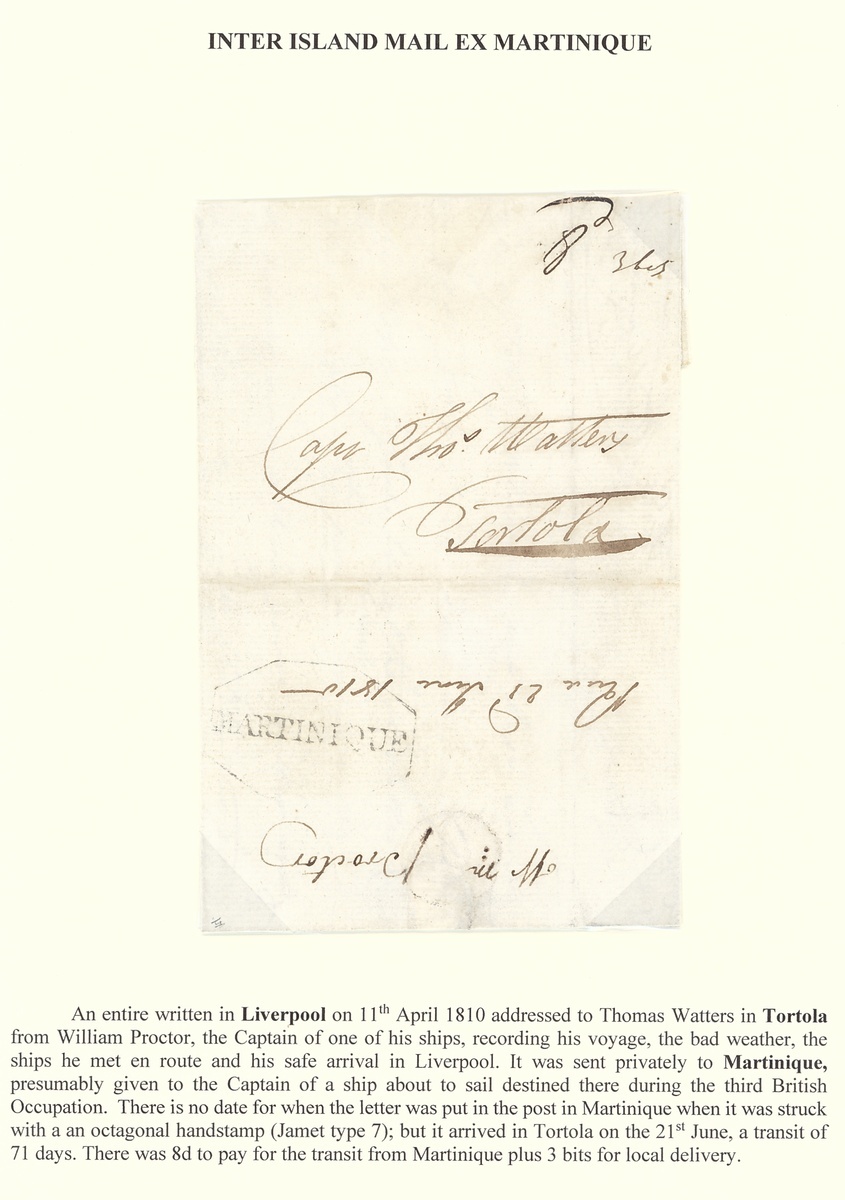 INTER ISLAND MAIL EX MARTINIQUE
8d
3 bits
Capt Thos. Watters
Tortola
21st June 1810
MARTINIQUE
Wm Proctor
An entire written in Liverpool on 11th April 1810 addressed to Thomas Watters in Tortola
from William Proctor, the Captain of one of his ships, recording his voyage, the bad weather, the
ships he met en route and his safe arrival in Liverpool. It was sent privately to Martinique,
presumably given to the Captain of a ship about to sail destined there during the third British
Occupation. There is no date for when the letter was put in the post in Martinique when it was struck
with a an octagonal handstamp (Jamet type 7); but it arrived in Tortola on the 21st June, a transit of
71 days. There was 8d to pay for the transit from Martinique plus 3 bits for local delivery.